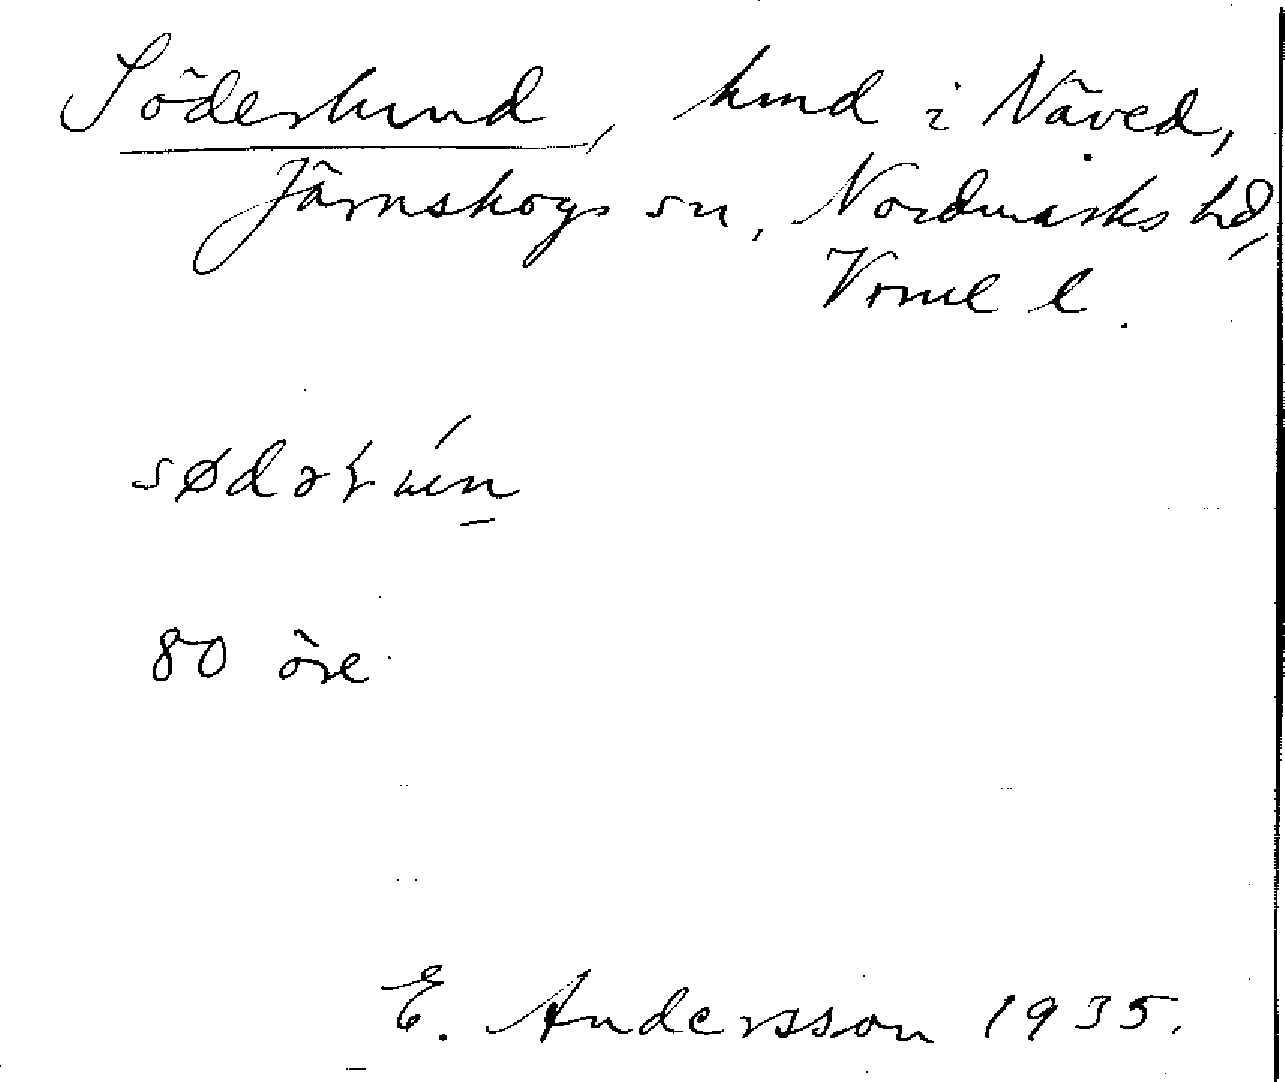 Söderlund, hmd i Näved,
Järnskogs sn, Nordmarks hd,
Vrml l.
80 öre
E. Andersson 1935.